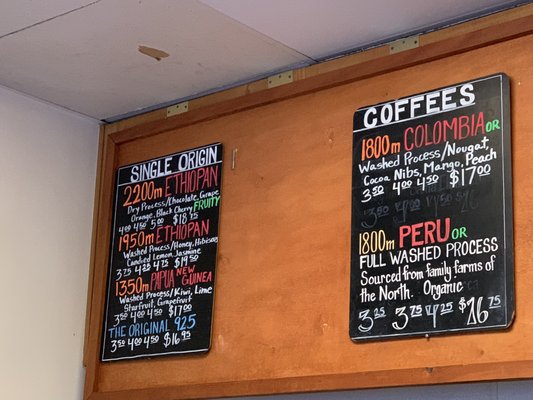 SINGLE ORIGIN
2200m ETHIOPAN
Dry Process/Chocolate, Grape
Orange, Black Cherry FRUITY
4⁰⁰ 4⁵⁰ 5⁰⁰ $18.⁷⁵
1950m ETHIOPAN
Washed Process/Honey, Hibiscus
Candied Lemon, Jasmine
3.⁷⁵ 4.²⁵ 4.⁷⁵ $19.⁵⁰
1350m PAPUA NEW GUINEA
Washed Process/Kiwi, Lime
Starfruit, Grapefruit
3⁵⁰ 4⁰⁰ 4⁵⁰ $17.⁰⁰
THE ORIGINAL 925
3⁵⁰ 4⁰⁰ 4⁵⁰ $16.⁹⁵
COFFEES
1800m COLOMBIA OR
Washed Process/Nougat,
Cocoa Nibs, Mango, Peach
3.⁵⁰ 4⁰⁰ 4⁵⁰ $17.⁰⁰
1800m PERU OR
FULL WASHED PROCESS
Sourced from family farms of
the North. Organic
3.²⁵ 3.⁷⁵ 4.²⁵ $16.⁷⁵